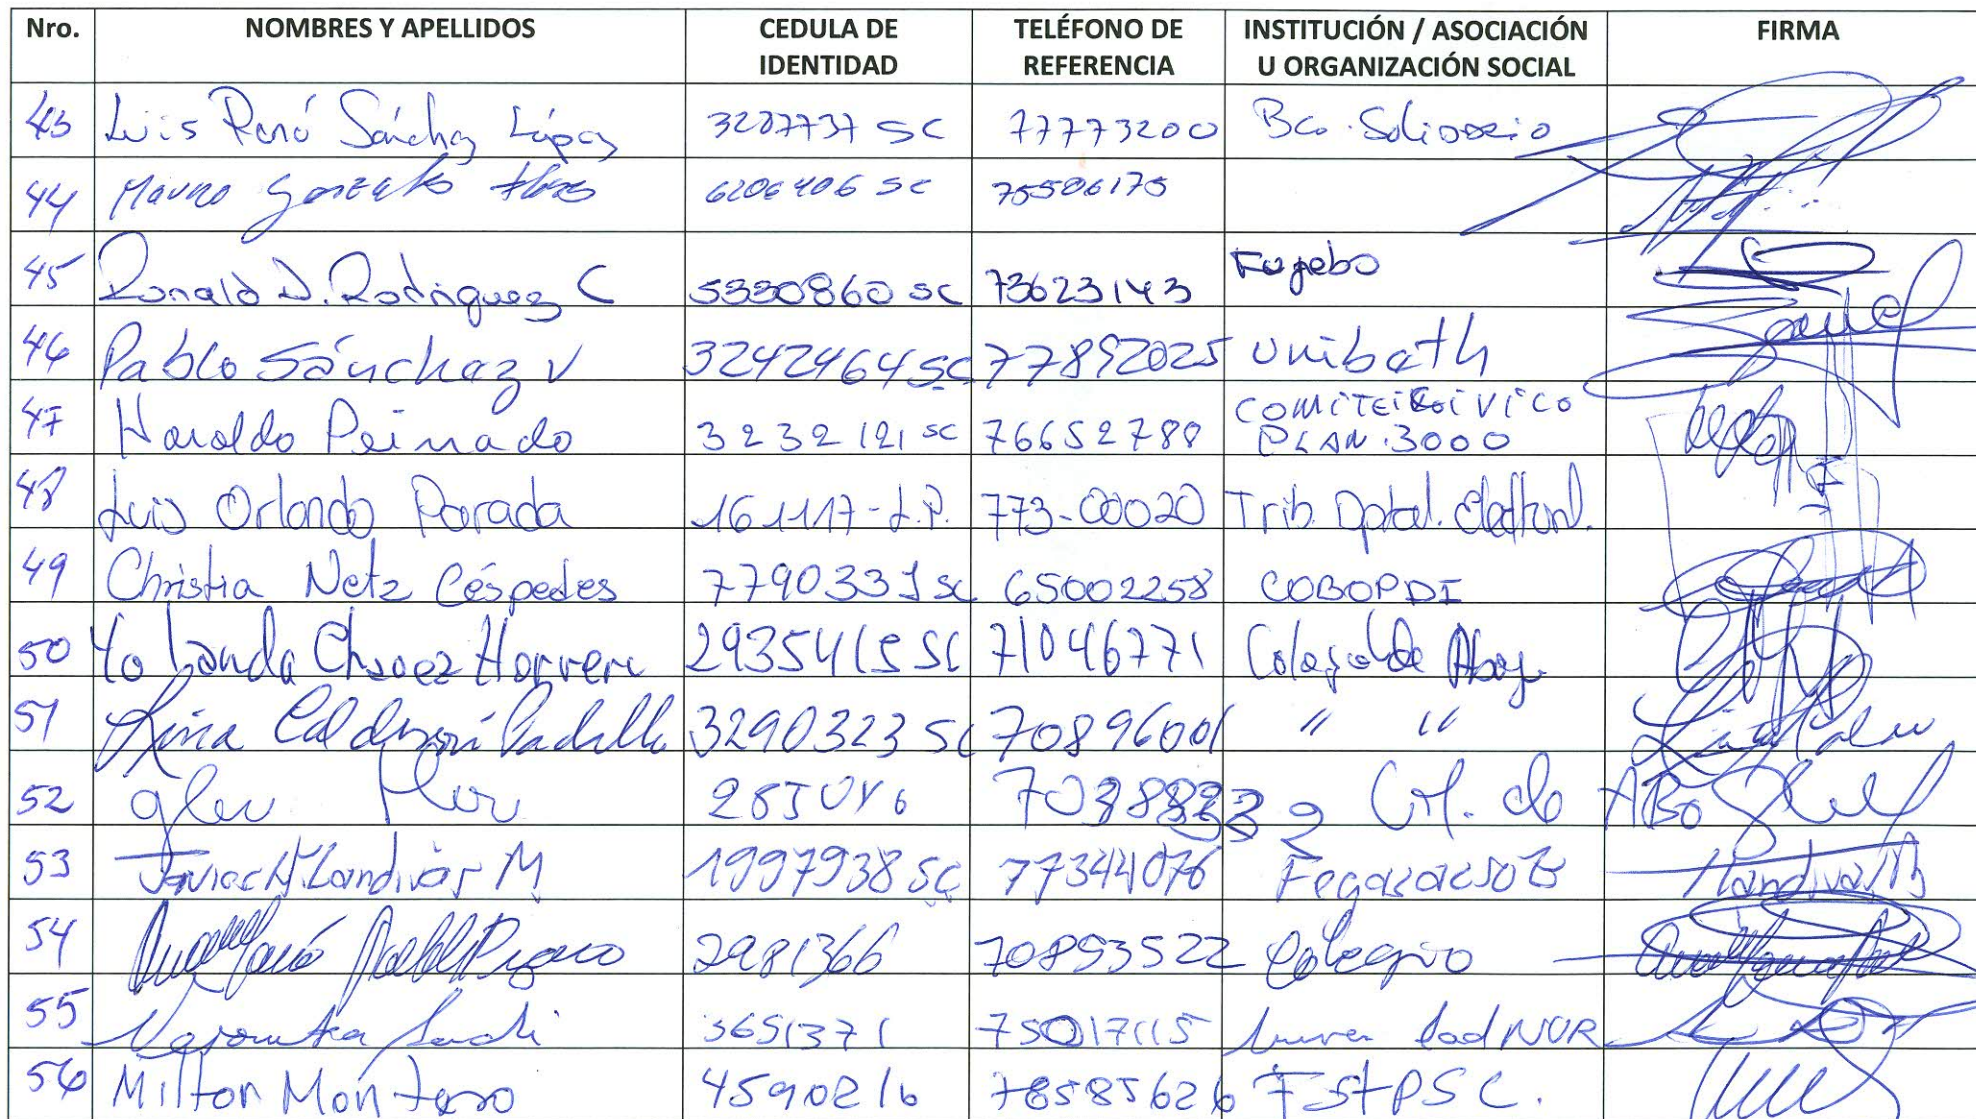 Nro. NOMBRES Y APELLIDOS CEDULA DE IDENTIDAD TELÉFONO DE REFERENCIA INSTITUCIÓN / ASOCIACIÓN U ORGANIZACIÓN SOCIAL FIRMA
43 Luis René Sánchez López 3207737 SC 77773200 Bco. Solidario
44 Mauro Gonzalo 6206406 SC 75506175
45 Ronald D. Rodriguez C 5330860 SC 73623143 Fugebo
46 Pablo Sánchez V 3242464 SC 77892025 Unibeth
47 Haroldo Peinado 3232121 SC 76652788 COMITE CIVICO PLAN 3000
48 Luis Orlando Parada 161117-L.P. 773-00020 Trib. Dptal. Electoral.
49 Christia Netz Céspedes 7790331 SC 65002258 COBOPDI
50 Yolanda Chavez Herrera 2935415 SC 71046771 Colegio de Abog.
51 Lina Calderón Padilla 3290323 SC 70896001 " "
52 Col. de ABO
53 Javier H. Landivar M 1997938 SC 77344076 Fegasacruz
54 2981366 70853522 Colegio
55 3651371 75017115 NUR
56 Milton Montero 4590216 78585626 FSTPSC.